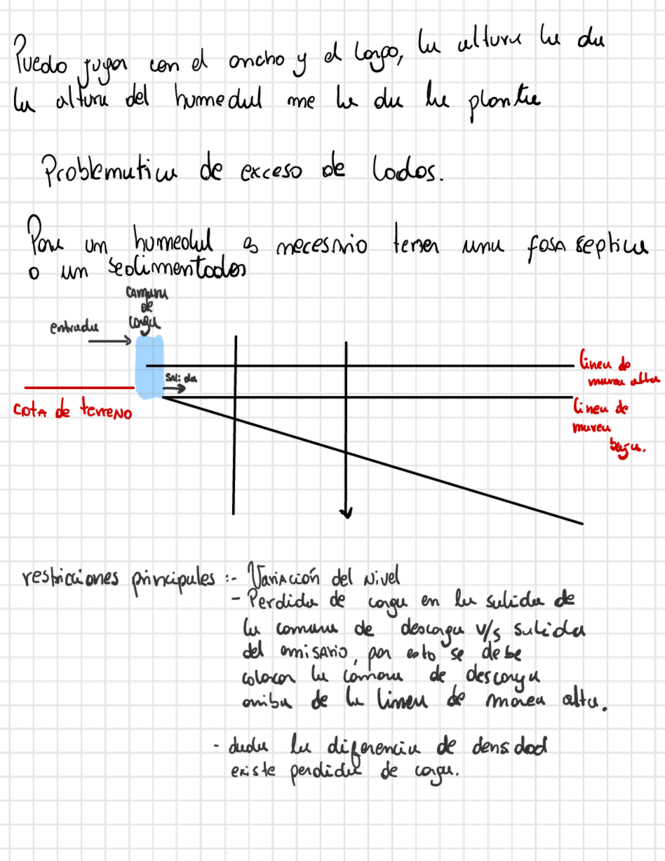 Puedo jugar con el ancho y el largo, la altura la da
la altura del humedal me la da la planta
Problematica de exceso de lodos.
Para un humedal es necesario tener una fosa septica
o un sedimentador
camara
de
carga
entrada
salida
linea de
marea alta
cota de terreno
linea de
marea
baja.
restricciones principales :- Variación del nivel
- Perdida de carga en la salida de
la camara de descarga v/s salida
del emisario, por esto se debe
colocar la camara de descarga
arriba de la linea de marea alta.
- dada la diferencia de densidad
existe perdida de carga.